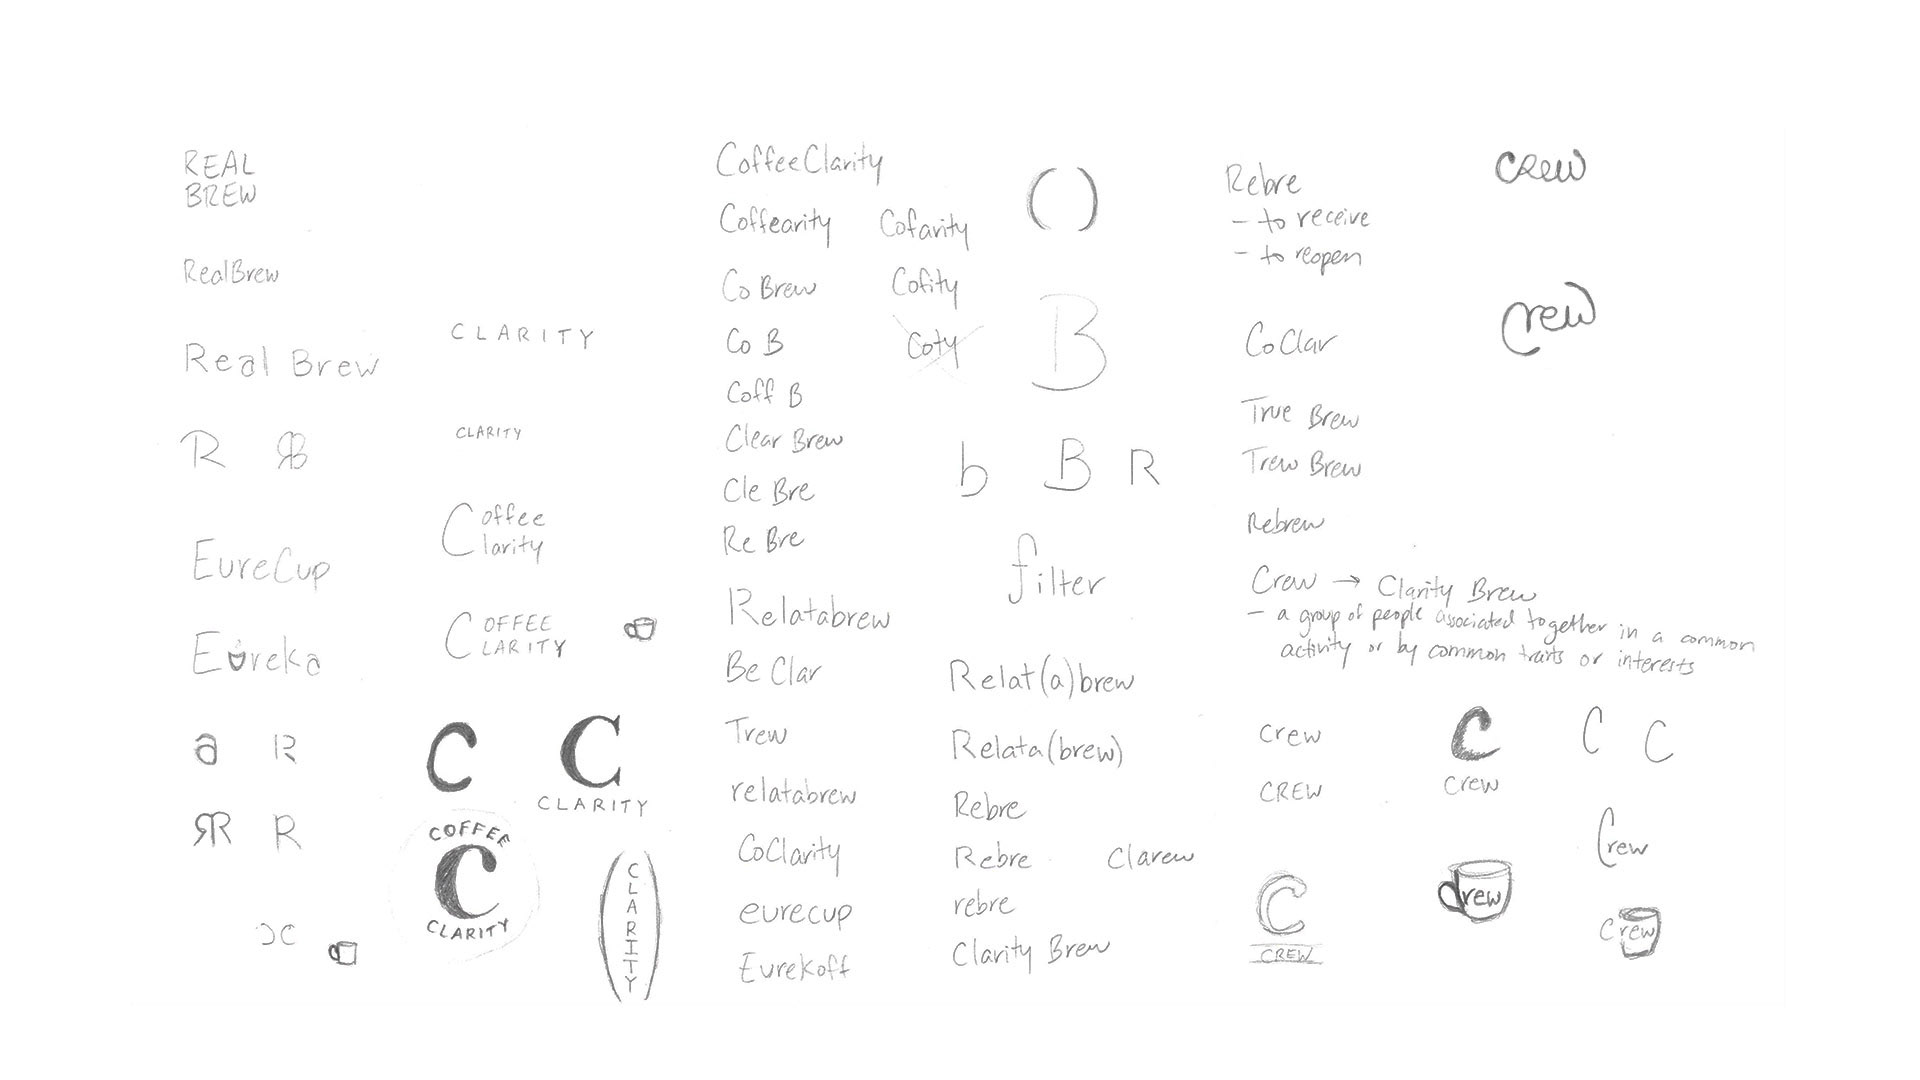 REAL
BREW
RealBrew
Real Brew
R RB
EureCup
Eureka
a R
RR R
C C
CLARITY
CLARITY
Coffee
Clarity
COFFEE
CLARITY
C
C
CLARITY
COFFEE
C
CLARITY
CLARITY
CoffeeClarity
Coffearity Cofarity
Co Brew Cofity
Co B Coty
Coff B
Clear Brew
Cle Bre
Re Bre
Relatabrew
Be Clar
Trew
relatabrew
CoClarity
eurecup
Eurekoff
( )
B
b B R
filter
Relat(a)brew
Relata(brew)
Rebre
Rebre Clarew
rebre
Clarity Brew
Rebre
- to receive
- to reopen
CoClar
True Brew
Trew Brew
Rebrew
Crew → Clarity Brew
- a group of people associated together in a common
activity or by common traits or interests
crew
crew
crew
CREW
C
CREW
C
crew
crew
C C
Crew
Crew